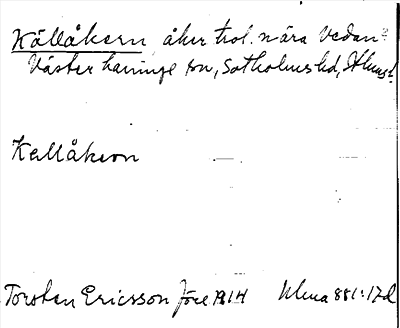 Källåkern, åker trol. nära Vedan?
Västerhaninge sn, Sotholms hd, Sthms l.
Kallåkern
Torsten Ericsson före 1914 Ulma 881:17d